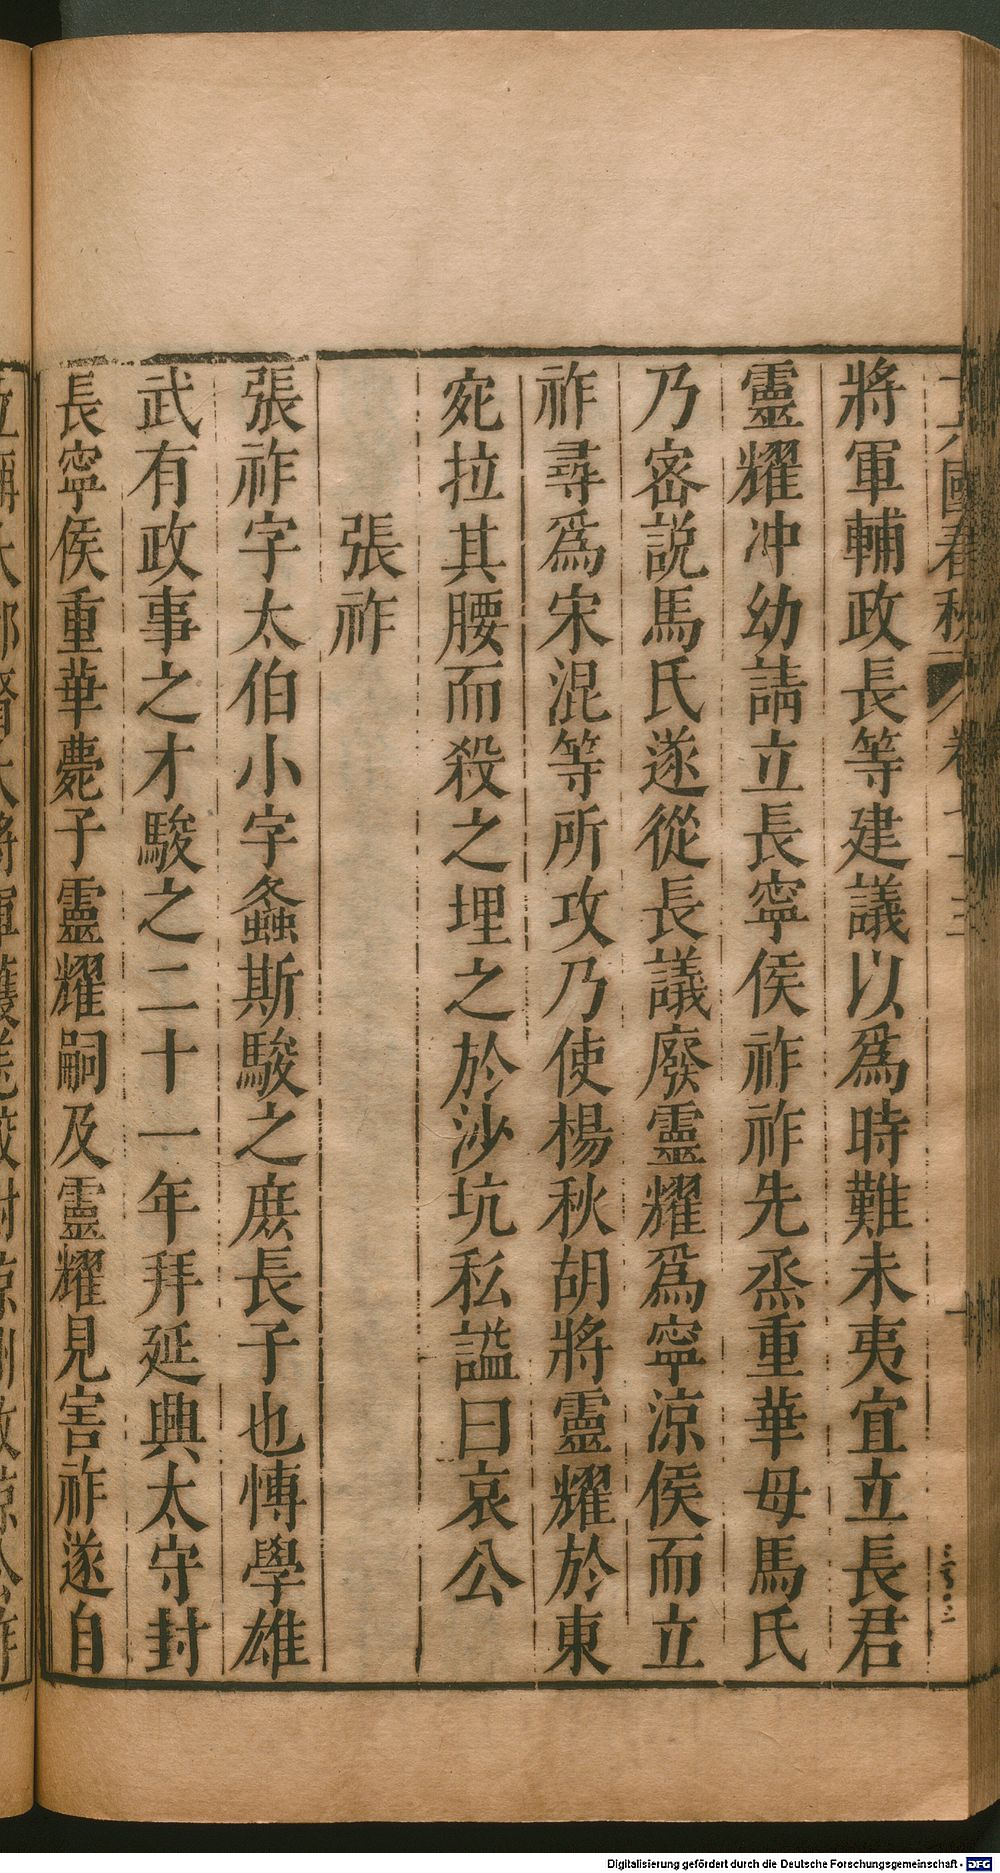 將軍輔政長等建議以爲時難未夷宜立長君
靈耀冲幼請立長寧侯祚祚先烝重華母馬氏
乃密説馬氏遂從長議廢靈耀爲寧涼侯而立
祚尋爲宋混等所攻乃使楊秋胡將靈耀於東
宛拉其腰而殺之埋之於沙坑私謚曰哀公
張祚
張祚字太伯小字螽斯駿之庶長子也愽學雄
武有政事之才駿之二十一年拜延興太守封
長寧侯重華薨子靈耀嗣及靈耀見害祚遂自
Digitalisierung gefördert durch die Deutsche Forschungsgemeinschaft - DFG